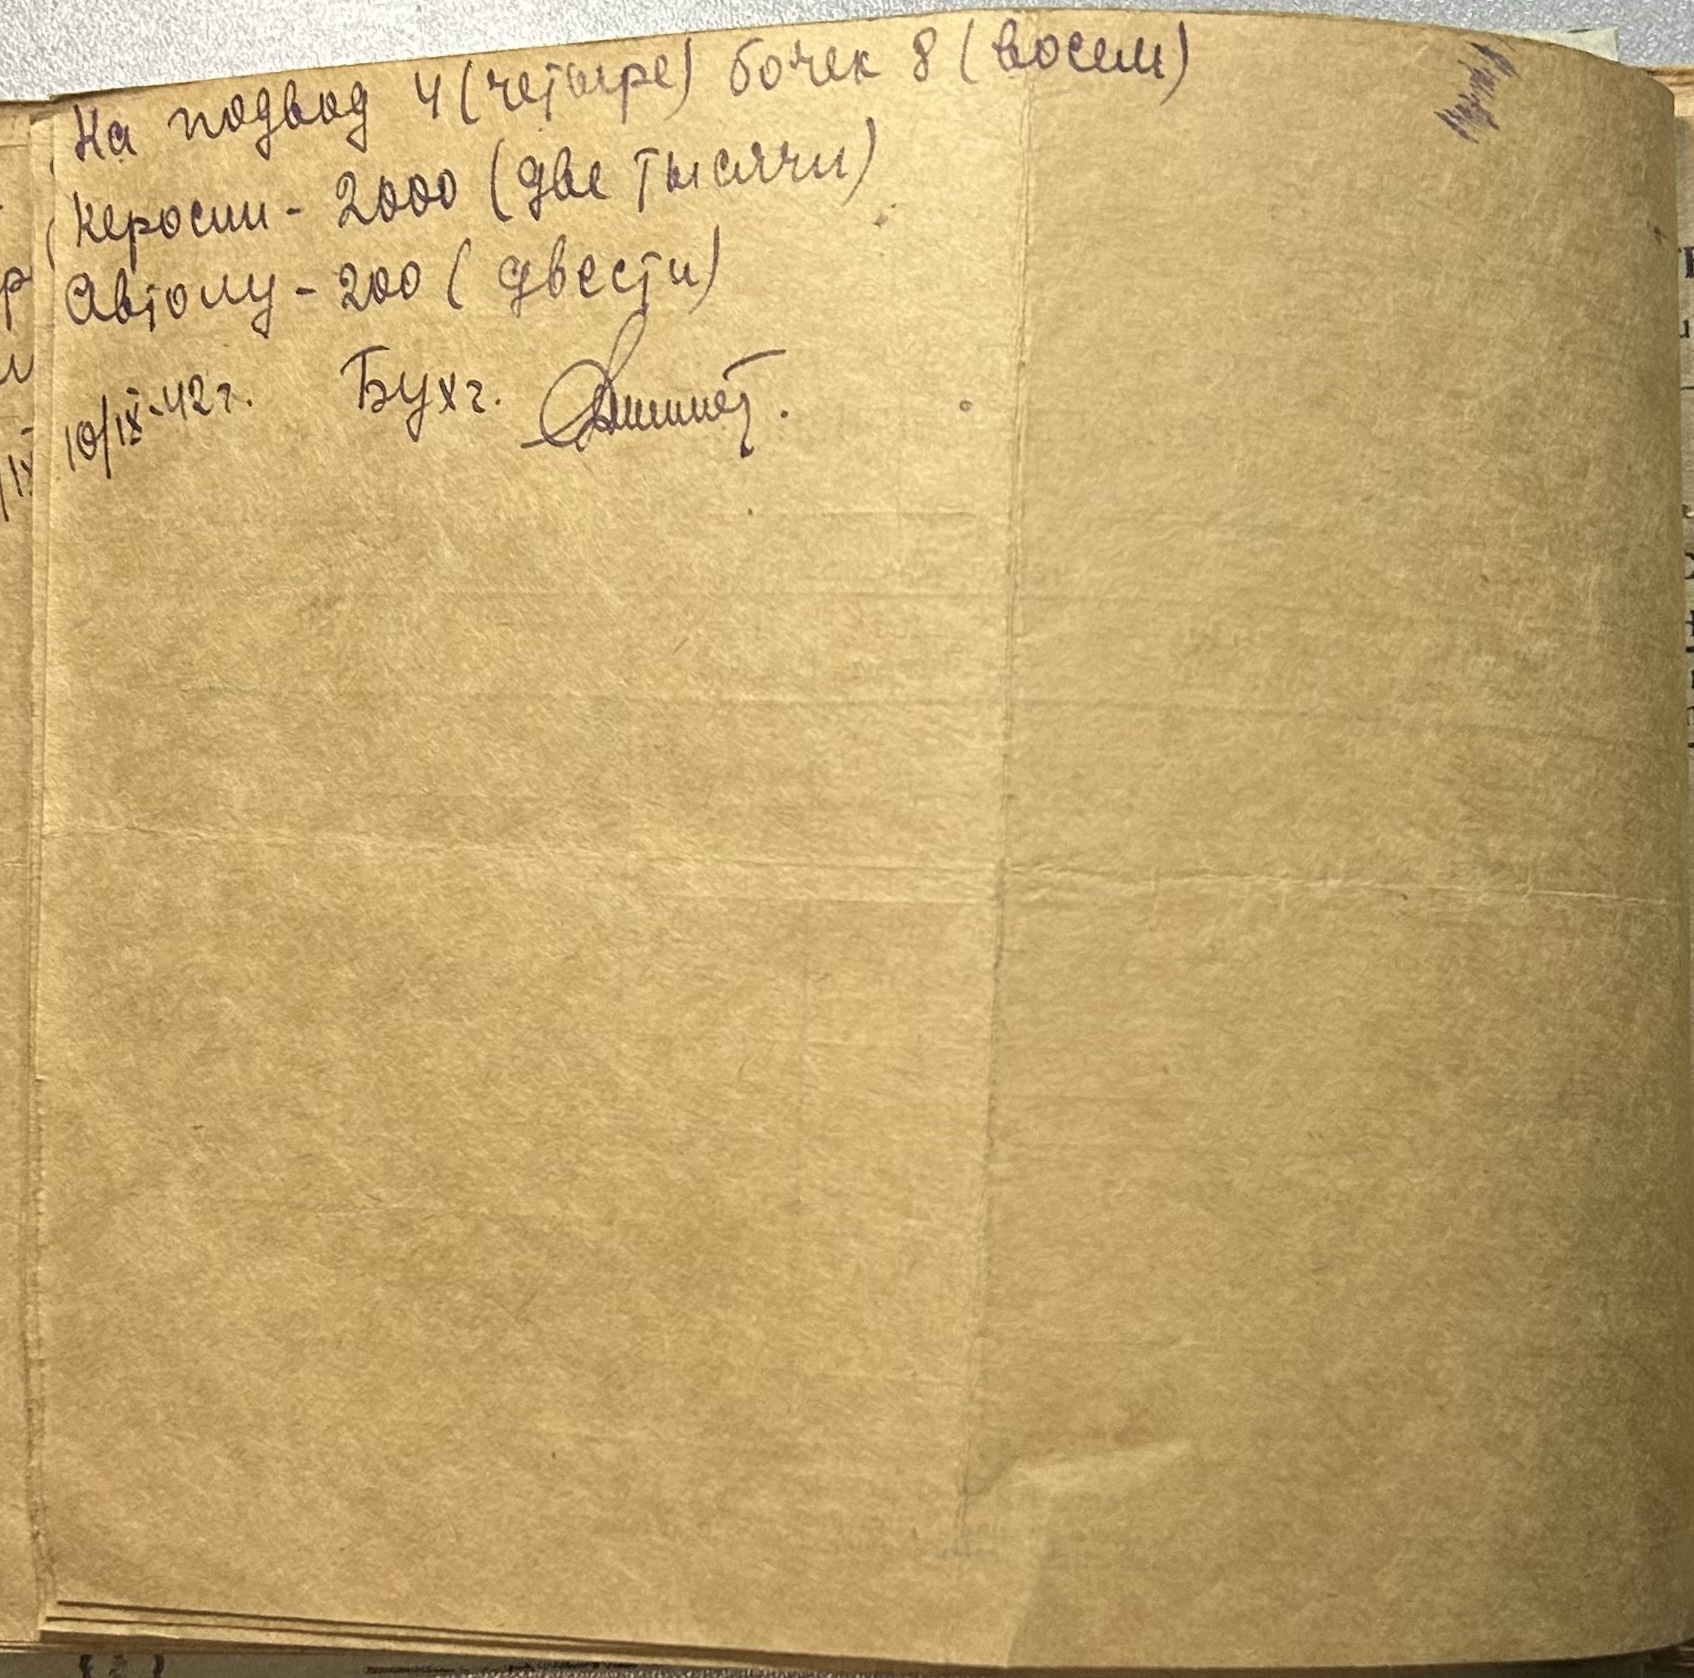 На подвод 4 (четыре) бочек 8 (восем)
Керосин - 2000 (две тысячи)
Автолу - 200 (двести)
10/IX-42 г. Бухг.